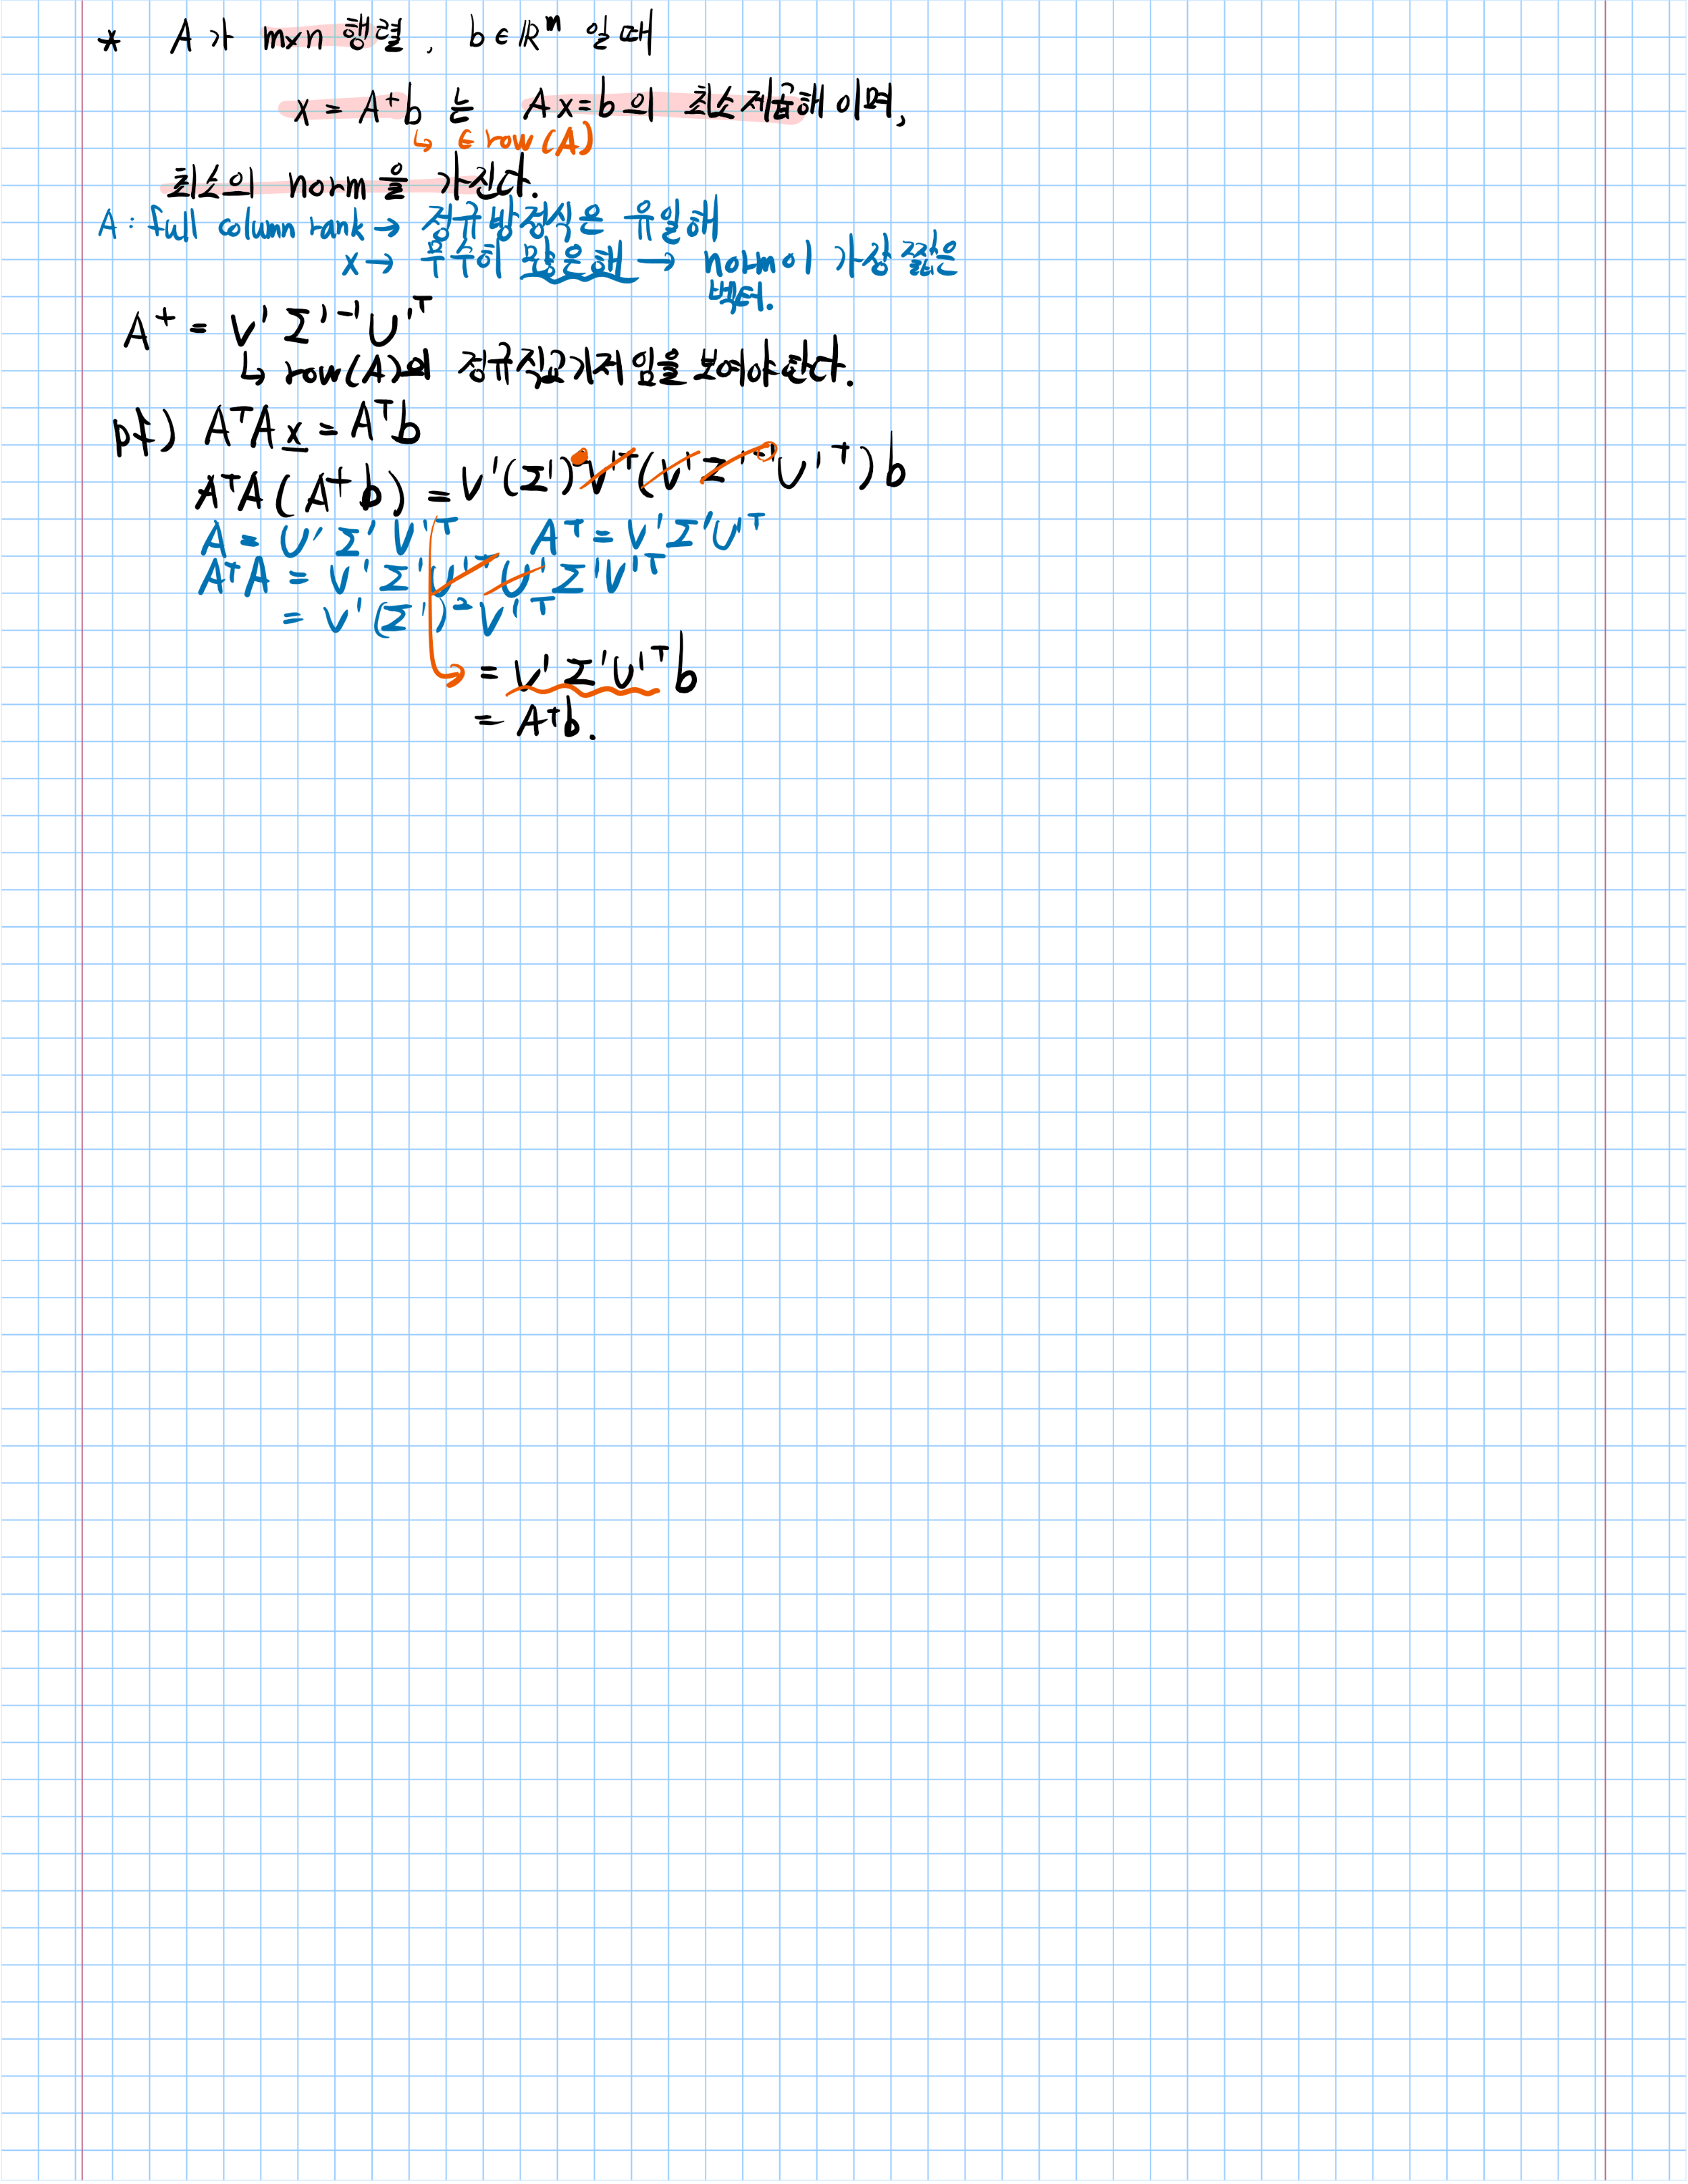 * A가 m×n 행렬, b∈ℝᵐ 일때
x = A⁺b 는 Ax=b의 최소제곱해이며,
↳ ∈ row(A)
최소의 norm을 가진다.
A : full column rank → 정규방정식은 유일해
x → 무수히 많은해 → norm이 가장 짧은
벡터.
A⁺ = V'Σ'⁻¹U'ᵀ
↳ row(A)의 정규직교기저임을 보여야한다.
pf) AᵀAx = Aᵀb
AᵀA(A⁺b) = V'(Σ')V'ᵀ(V'Σ'⁻¹U'ᵀ)b
A = U'Σ'V'ᵀ Aᵀ = V'Σ'U'ᵀ
AᵀA = V'Σ'U'ᵀU'Σ'V'ᵀ
= V'(Σ')²V'ᵀ
= V'Σ'U'ᵀb
= Aᵀb.